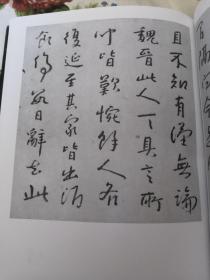 且不知有漢無論
魏晉此人一一具言所
聞皆歎惋餘人各
復延至其家皆出酒
食停數日辭去此